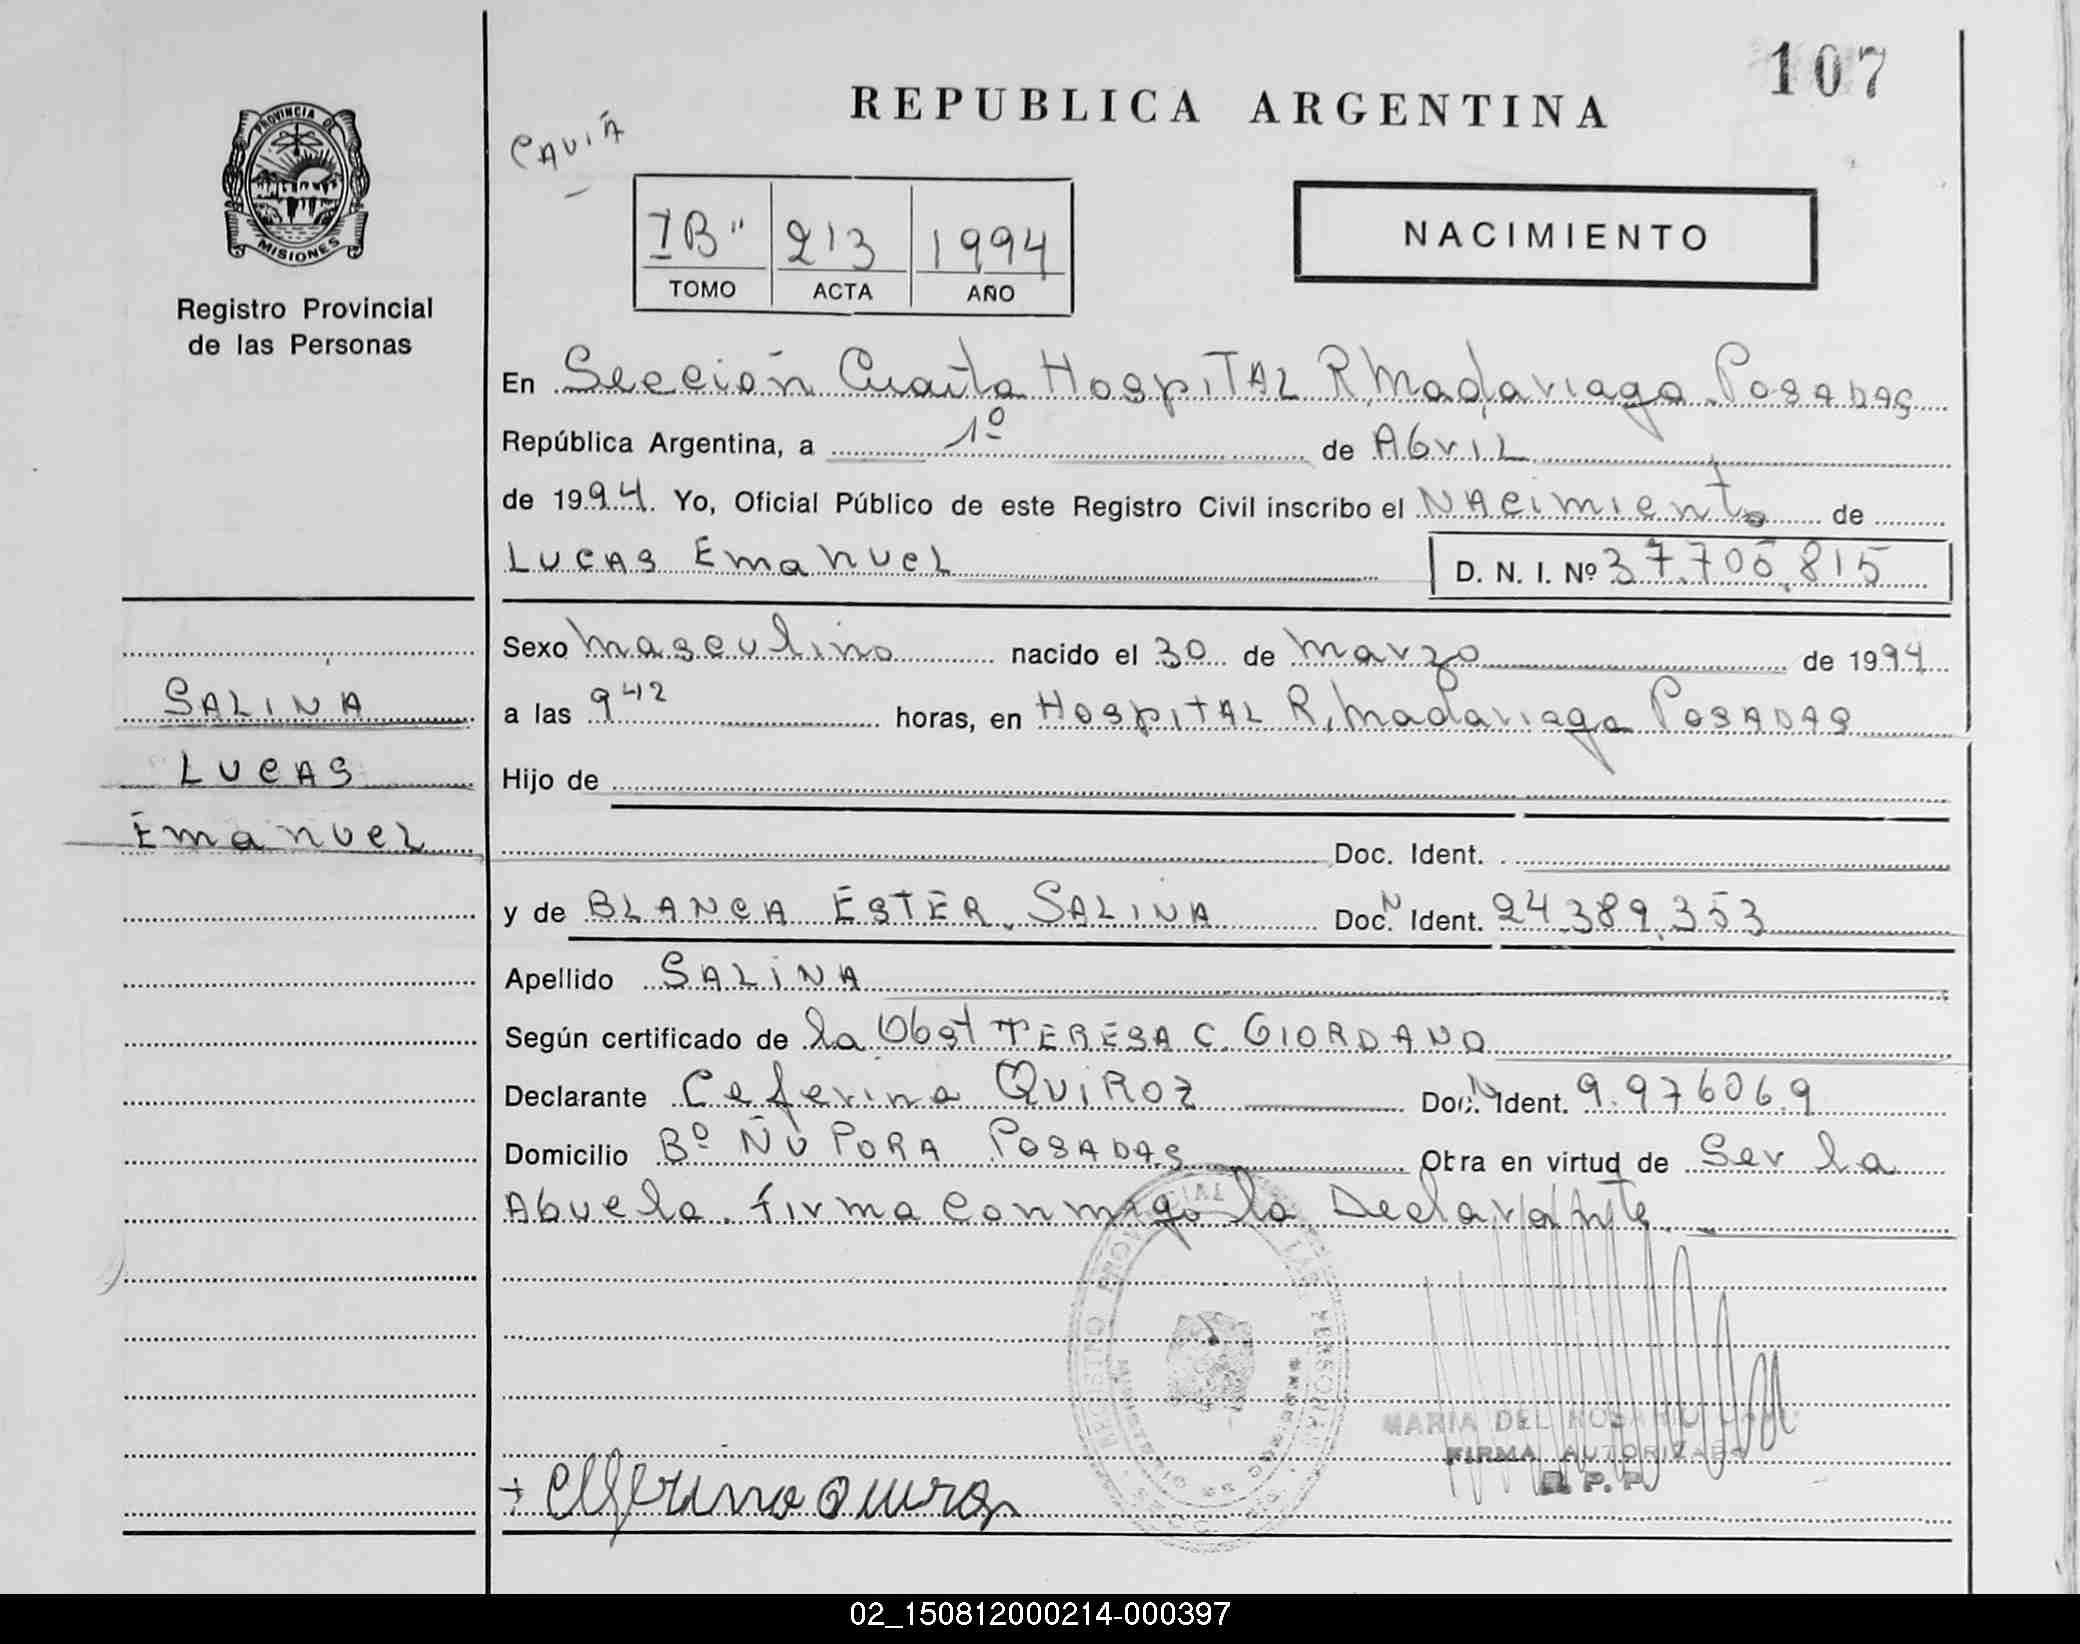 107
REPUBLICA ARGENTINA
CAVIA
PROVINCIA DE
MISIONES
Registro Provincial
de las Personas
I B" 213 1994
TOMO ACTA AÑO
NACIMIENTO
En Sección Cuarta Hospital R. Madariaga Posadas
República Argentina, a 1º de Abril
de 1994. Yo, Oficial Público de este Registro Civil inscribo el Nacimiento de
Lucas Emanuel D. N. I. Nº 37.705.815
Sexo masculino nacido el 30 de marzo de 1994
SALINA
a las 9 42 horas, en Hospital R. Madariaga Posadas
LUCAS
Hijo de
Emanuel
Doc. Ident.
y de BLANCA ESTER SALINA Doc. N Ident. 24.389.353
Apellido SALINA
Según certificado de la Obst TERESA C. GIORDANO
Declarante Ceferina QUIROZ Doc. N Ident. 9.976069
Domicilio Bº ÑU PORA POSADAS Otra en virtud de Ser la
Abuela. firma conmigo la Declarante
REGISTRO PROVINCIAL DE LAS PERSONAS
MARIA DEL ROSARIO
FIRMA AUTORIZADA
R. P. P.
02_150812000214-000397